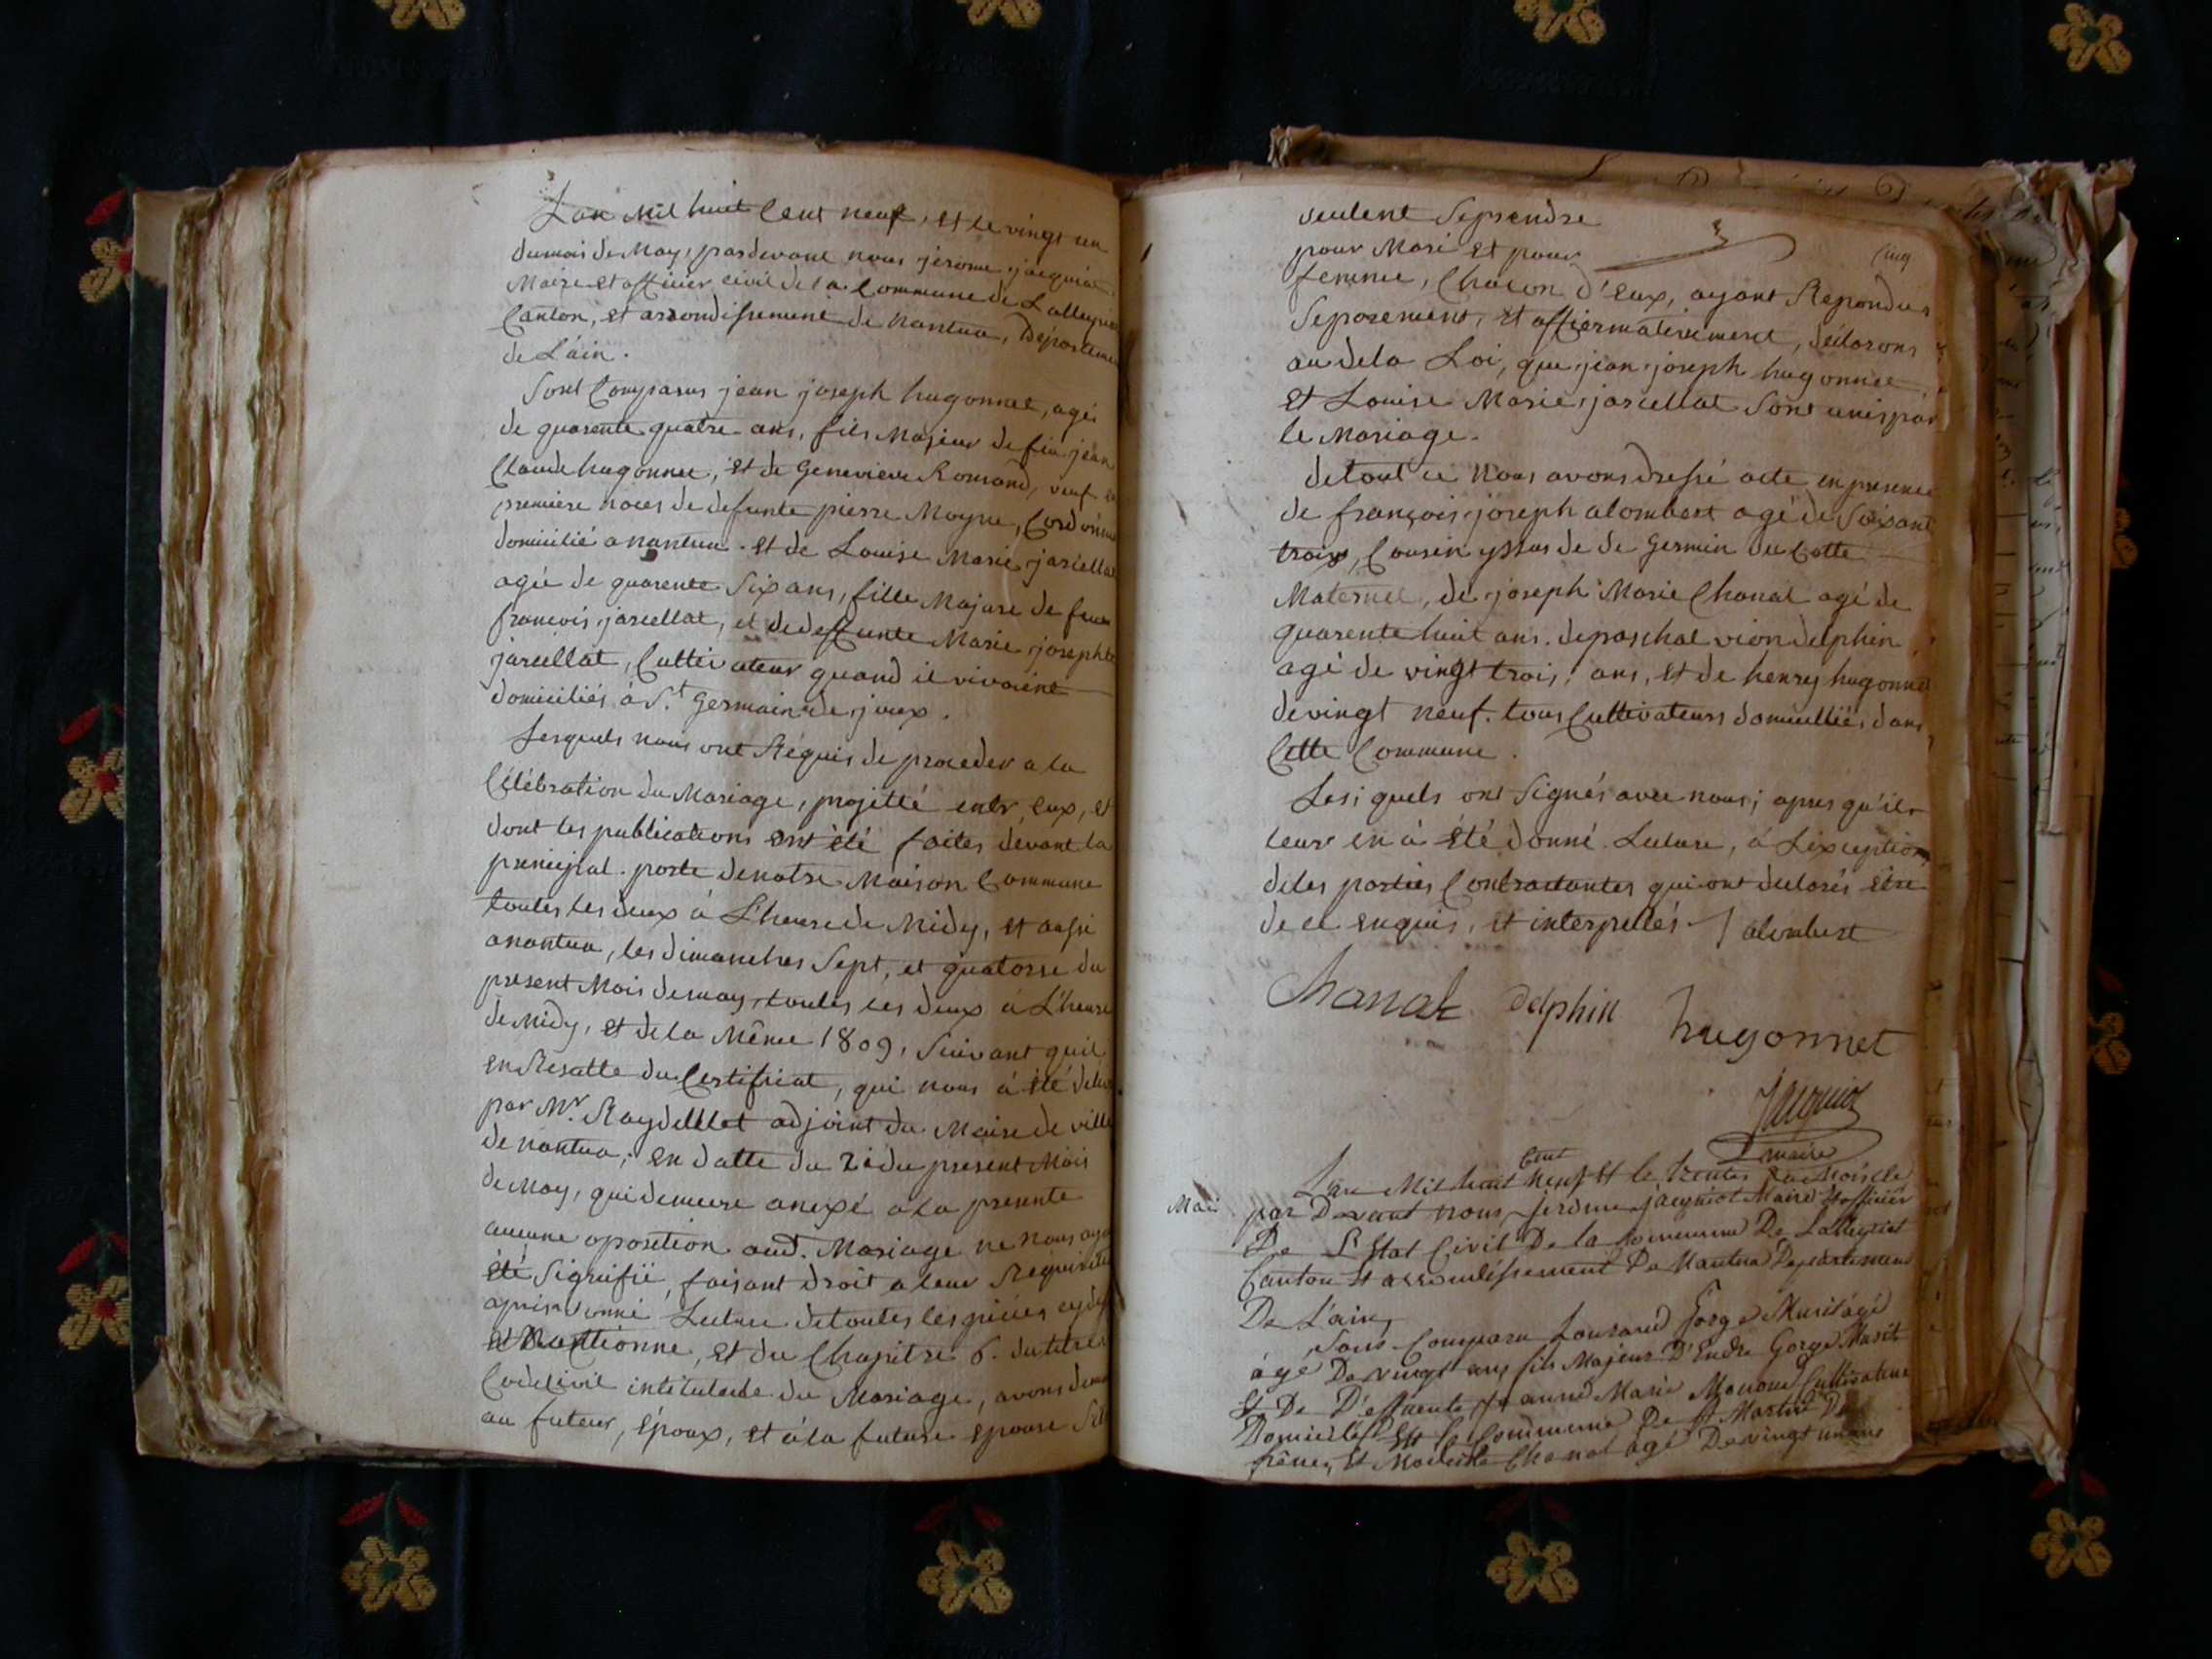 Lan mil huit Cent neuf, et le vingt un
du mois de May, pardevant nous jerome jacquiot
Maire et officier civil de la Commune de Lalleyriat
Canton, et arrondissement de nantua, Departement
de L'ain.
Sont Comparus jean joseph hugonnet, agé
de quarente quatre ans, fils Majeur de feu jean
Claude hugonnet, et de Genevieve Romand, veuf en
premiere noces de defunte pierre Moyne, Cordonnier
domicilié a nantua. et de Louise Marie jarcellat
agée de quarente Six ans, fille Majure de feu
francois jarcellat, et de deffunte Marie josephte
jarcellat, Cultivateur quand il vivoient
domiciliés à St. Germain de joux.
Lesquels nous ont Réquis de proceder a la
Célébration du Mariage, projetté entr eux, et
dont les publications ont été faites devant la
principal. porte de notre Maison Commune
toutes les deux à L'heure de Midy, et aussi
anantua, les dimanches Sept, et quatorse du
présent Mois de may, toutes les deux à L'heure
de Midy, et de la Même 1809, Suivant quil
en Resulte du Certificat, qui nous à été delivré
par Mr. Raydellet adjoint du Maire de ville
de nantua, en datte du 21 du present Mois
de May, qui demeure anexé a la presente
aucune oposition aud. Mariage ne nous ayant
été Signifié, faisant droit a leur Requisition
apres donné Lecture de toutes les pièces cy dessus
et Mentionné, et du Chapitre 6. du titre
Code Civil intitulé du Mariage, avons demandé
au futeur, époux, et à la future epouse S'il
veulentSeprendre
pour Mari et pour
femme, Chacun d'eux, ayant Repondus
Séparement, et affirmativement, déclarons
au de la Loi, que jean joseph hugonnet
et Louise Marie jarcellat Sont unis par
le Mariage.
de tout ce Nous avons dressé acte en presence
de françois joseph alombert agé de Soixant
trois, Cousin yssus de de Germin du Cotte
Maternel, de joseph Marie Chanal agé de
quarente huit ans. de paschal vion delphin
agé de vingt trois, ans, et de henry hugonnet
de vingt neuf. tous Cultivateurs domicilliés dans
Cette Commune.
Lesiquels ont Signés avec nous, apres qu'il
leur en à été donné Lecture, à L'exception
de les parties Contractantes qui ont declarés être
de ce enquis, et interpellés. / alombert
Chanal Delphin hugonnet
Jacquiot
maire
Cent
Lan Mil huit neuf et le trentes du Mois de
Mai par Devant nous jerôme jacquiot Maire et officier
De L'Etat Civil De la Commune De Lalleyriat
Canton et arrondissement De Nantua Departement
De L'ain,
Sont Comparu Gorge Musit âgé
âgé De vingt ans fils Majeur D' Gorge Musit
Et De D'effuente Marie Cultivateur
Domicilié Commune De St Martin Du
frêne, Et Chanal agé De vingt un ans